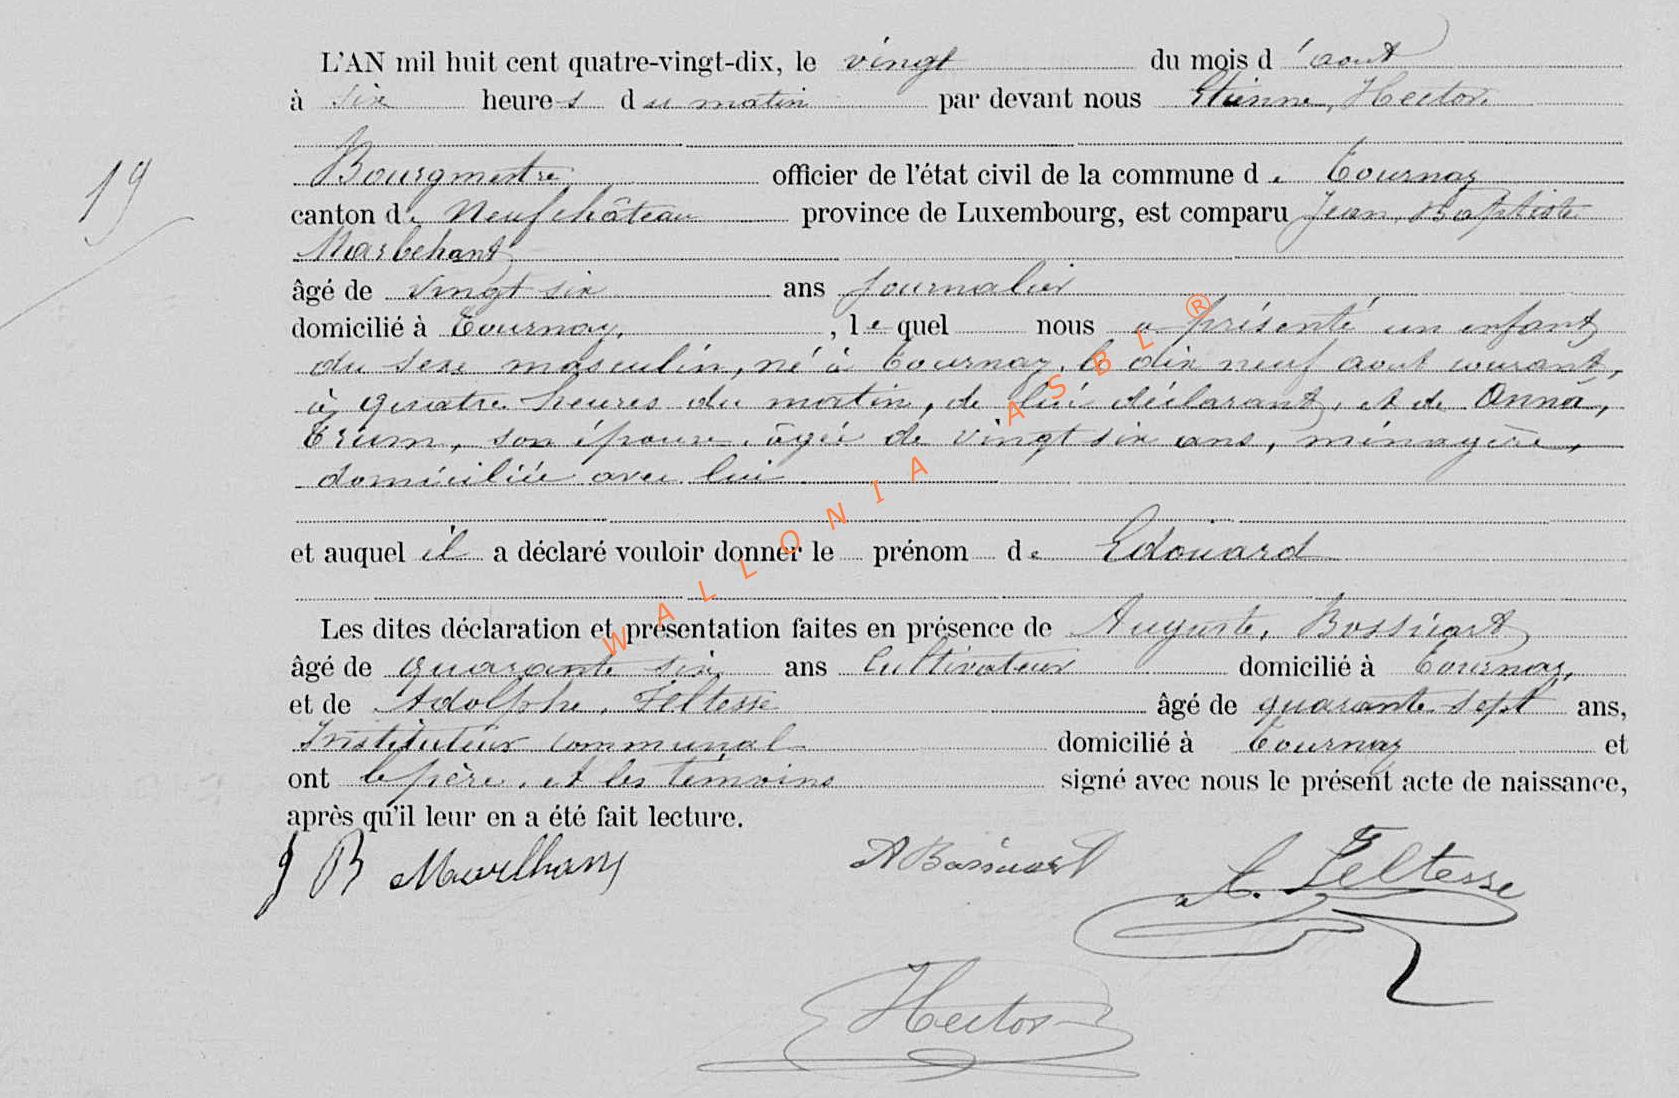 L'AN mil huit cent quatre-vingt-dix, le vingt du mois d'aout
à six heures du matin par devant nous Etienne, Hector,
Bourgmestre officier de l'état civil de la commune de Tournay
19
canton de Neufchâteau province de Luxembourg, est comparu Jean, Baptiste
Marbehant
âgé de vingt six ans journalier
domicilié à Tournay, , lequel nous a présenté un enfant
du sexe masculin, né à Tournay, le dix neuf aout courant,
à quatre heures du matin, de lui déclarant, et de Anna,
Trum, son épouse, âgée de vingt six ans, ménagère,
domiciliée avec lui
et auquel il a déclaré vouloir donner le prénom de Edouard
Les dites déclaration et présentation faites en présence de Auguste, Bossicart
âgé de quarante six ans Cultivateur domicilié à Tournay,
et de Adolphe, Feltesse âgé de quarante sept ans,
Instituteur communal domicilié à Tournay et
ont le père, et les témoins signé avec nous le présent acte de naissance,
après qu'il leur en a été fait lecture.
J B A Bossicart A. Feltesse
Hector
WALLONIA ASBL ®